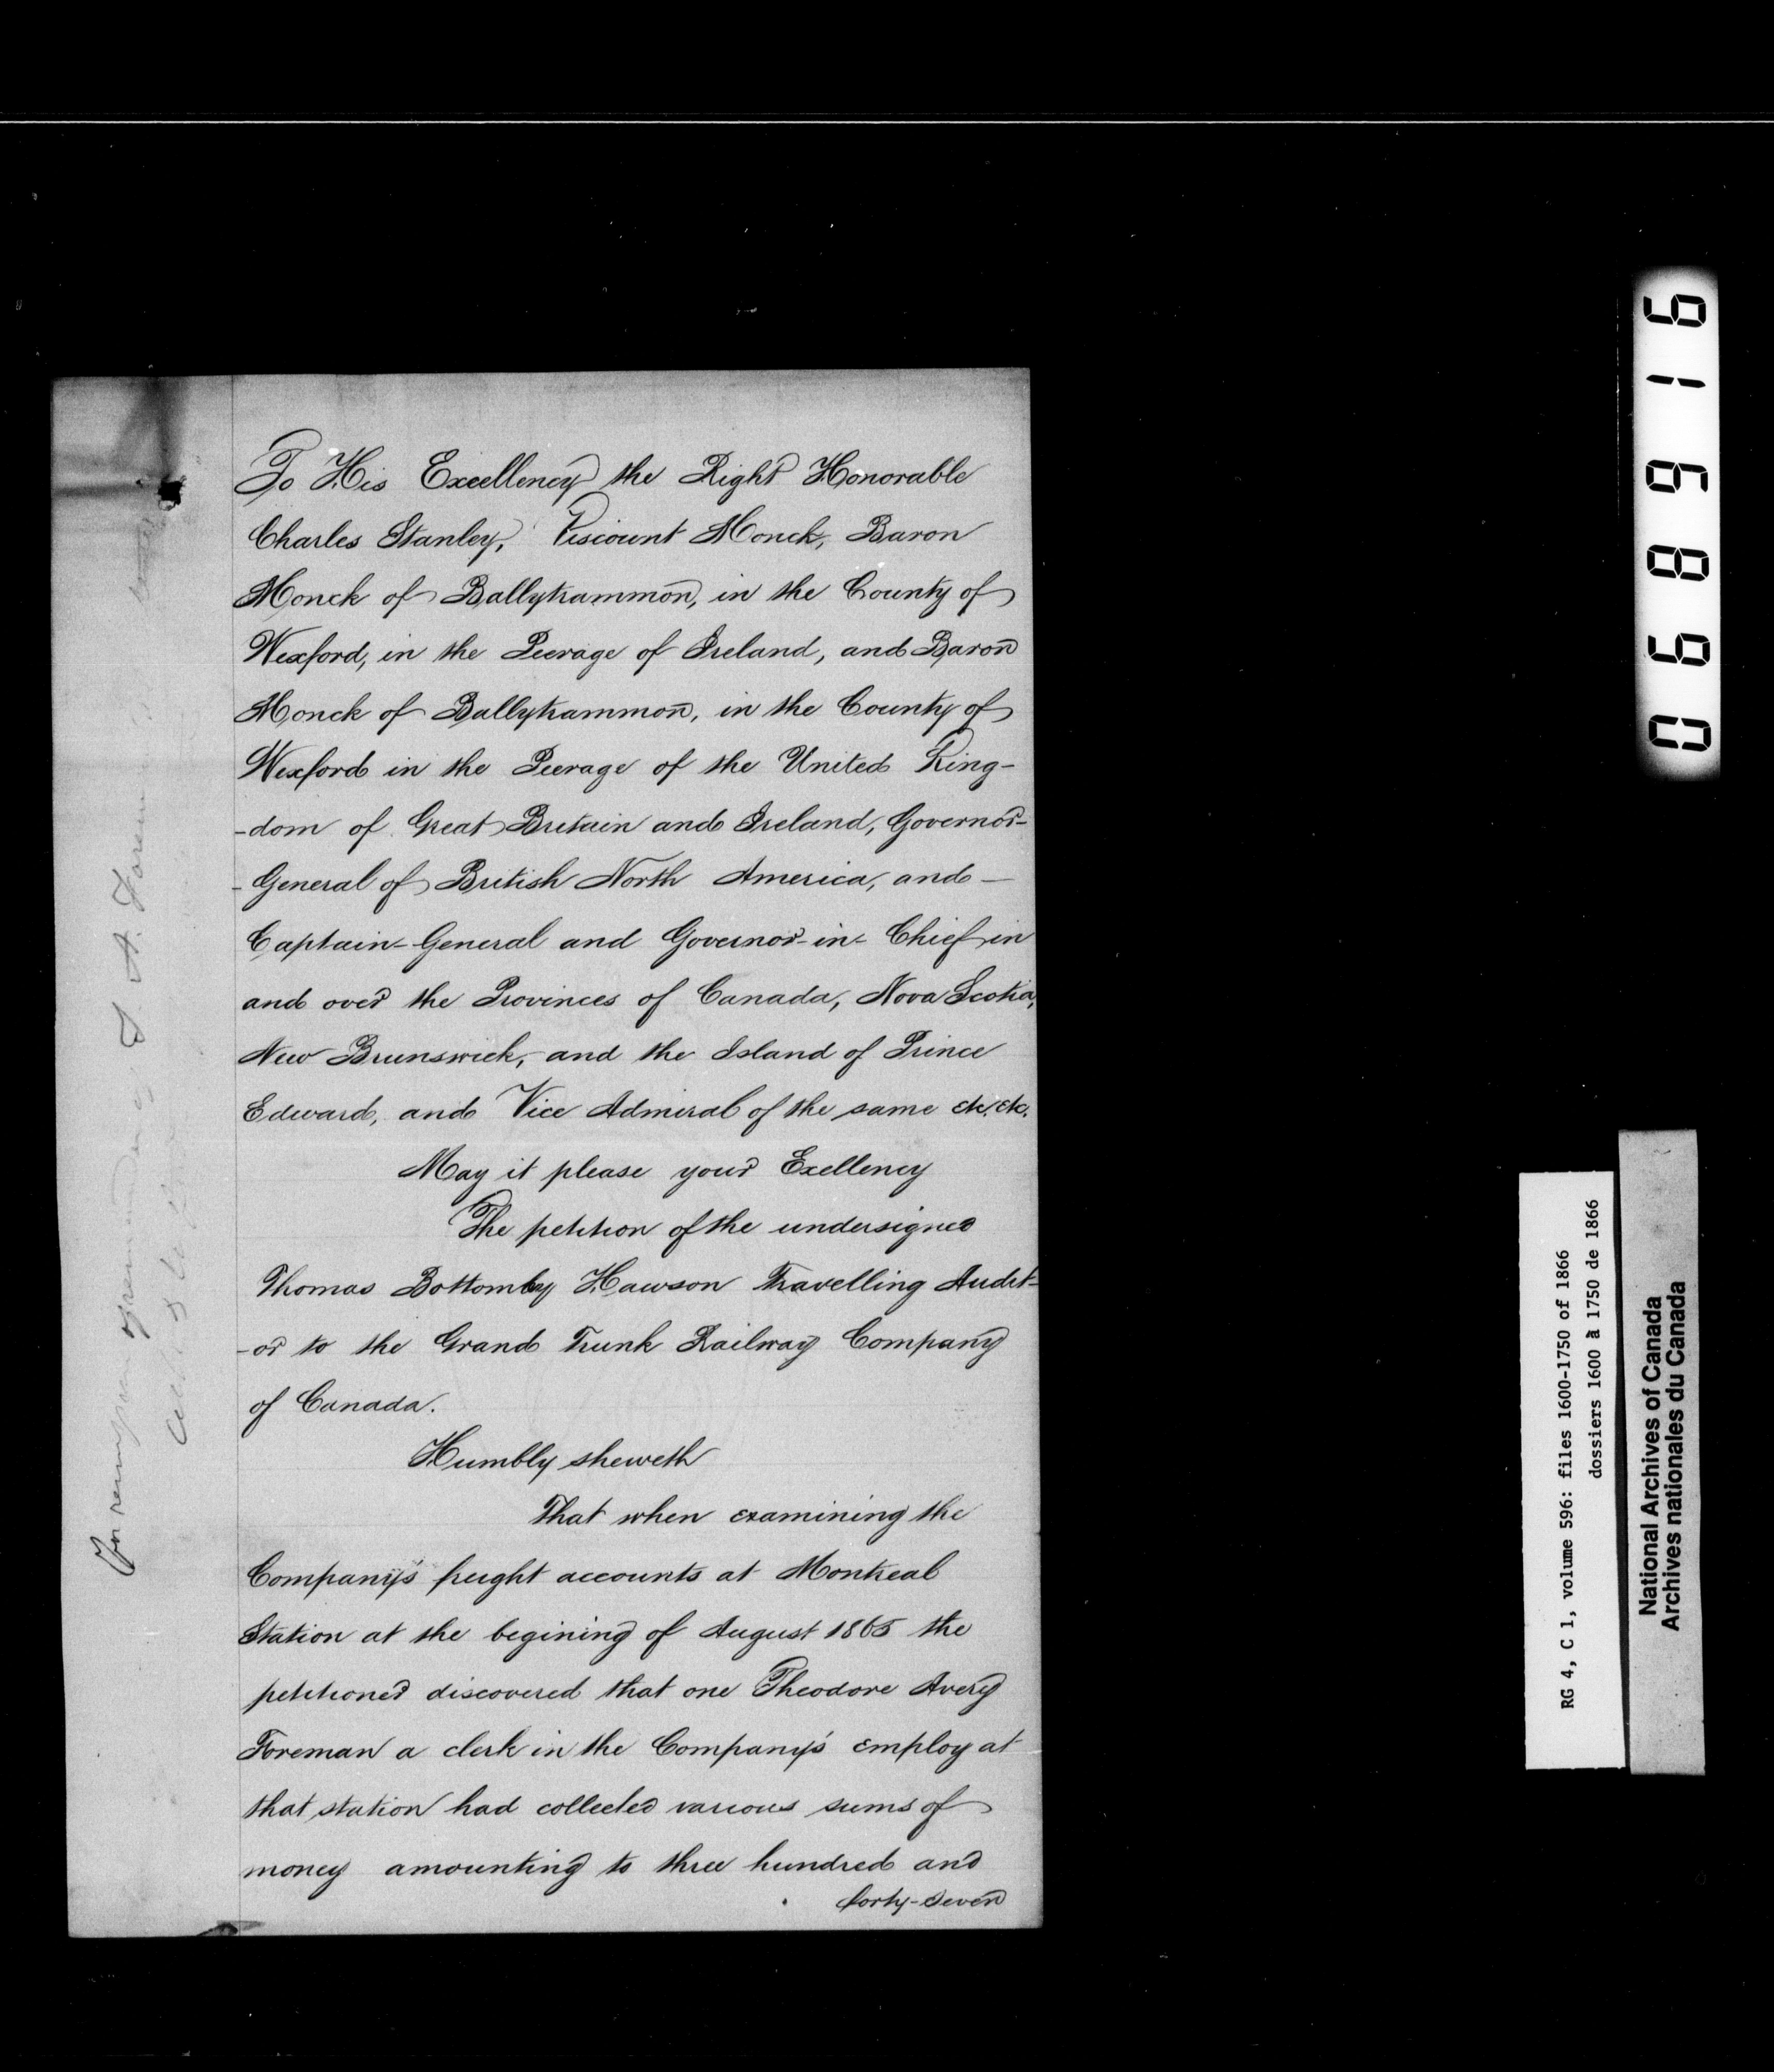 To His Excellency the Right Honorable
Charles Stanley, Viscount Monck, Baron
Monck of Ballytrammon, in the County of
Wexford, in the Peerage of Ireland, and Baron
Monck of Ballytrammon, in the County of
Wexford in the Peerage of the United King-
-dom of Great Britain and Ireland, Governor-
-General of British North America, and —
Captain-General and Governor-in-Chief in
and over the Provinces of Canada, Nova Scotia,
New Brunswick, and the Island of Prince
Edward, and Vice Admiral of the same etc. etc.
May it please your Exellency
The petition of the undersigned
Thomas Bottomley Hawson Travelling Audit-
-or to the Grand Trunk Railway Company
of Canada.
Humbly sheweth
That when examining the
Company's freight accounts at Montreal
Station at the begining of August 1865 the
petitioner discovered that one Theodore Avery
Foreman a clerk in the Company's employ at
that station had collected various sums of
money amounting to three hundred and
forty-seven
For remission of remainder of T. A. Foreman's
068916
RG 4, C 1, volume 596: files 1600-1750 of 1866
dossiers 1600 à 1750 de 1866
National Archives of Canada
Archives nationales du Canada